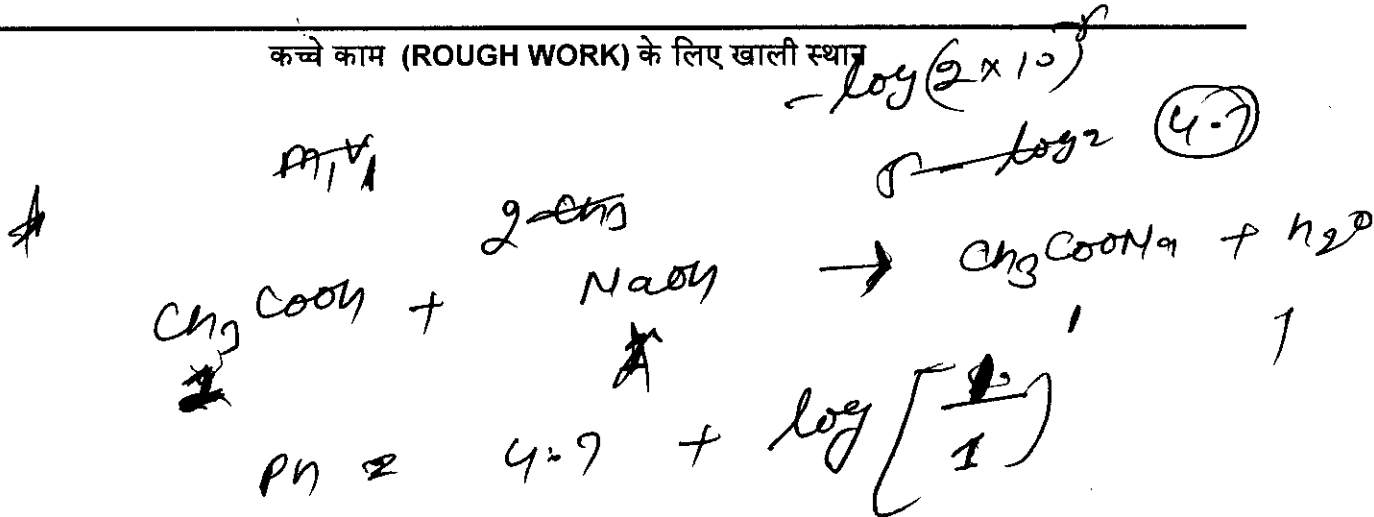 कच्चे काम (ROUGH WORK) के लिए खाली स्थान
- log(2 × 10
log2 4.7
CH3COOH + NaOH → CH3COONa + H2O
1 1 1
PH = 4.7 + log [1/1]